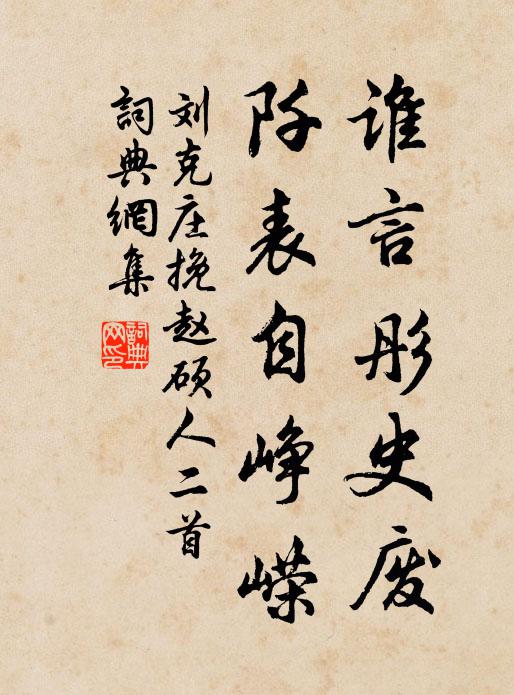 谁言彤史废
阡表自峥嵘
刘克庄挽赵硕人二首
詞典網集
詞典
网印